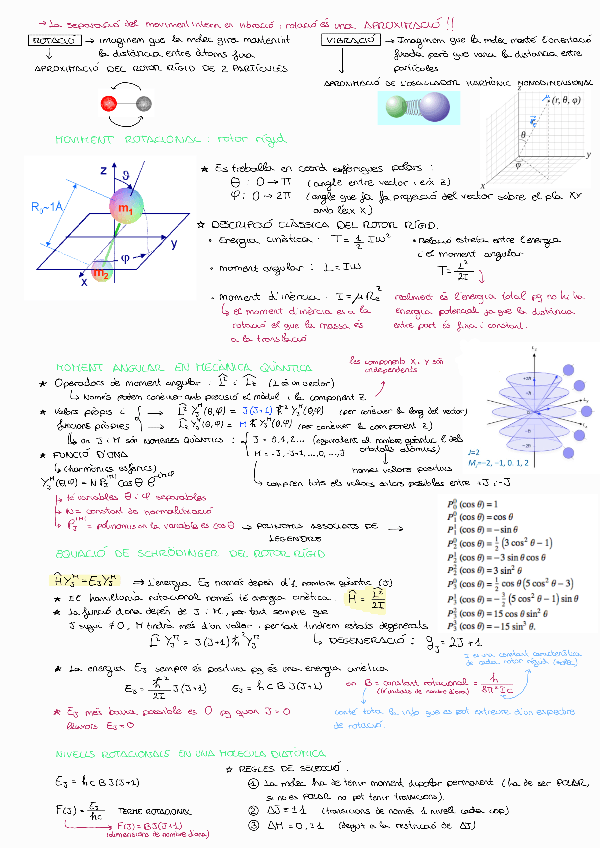 → La separació del moviment intern en vibració i rotació és una APROXIMACIÓ !!
ROTACIÓ → imaginem que la molec gira mantenint
la distància entre àtoms fixa
APROXIMACIÓ DEL ROTOR RÍGID DE 2 PARTÍCULES
VIBRACIÓ → Imaginem que la molec manté l'orientació
fixada però que varia la distància entre
partícules
APROXIMACIÓ DE L'OSCIL·LADOR HARMÒNIC MONODIMENSIONAL
z
(r, θ, φ)
θ
φ
x
y
MOVIMENT ROTACIONAL : rotor rígid
z
ϑ
R₀~1A
m₁
y
φ
x
m₂
★ Es treballa en coord esfèriques polars :
θ : 0 → π (angle entre vector i eix z)
φ : 0 → 2π (angle que fa la projecció del vector sobre el pla XY
amb l'eix X)
★ DESCRIPCIÓ CLÀSSICA DEL ROTOR RÍGID.
• Energia cinètica : T = 1/2 Iω²
• Relació estreta entre l'energia
i el moment angular
T = L²/2I
• moment angular : L = Iω
• moment d'inèrcia : I = μR₀²
↳ el moment d'inèrcia és a la
rotació el que la massa és
a la translació
realment és l'energia total pq no hi ha
energia potencial ja que la distància
entre part és fixa i constant.
MOMENT ANGULAR EN MECÀNICA QUÀNTICA
les components X, Y són
independents
★ Operadors de moment angular : L̂² i L̂z (L és un vector)
↳ Només podem conèixer amb precisió el mòdul i la component Z.
★ Valors propis i { → L̂² Y_J^M(θ,φ) = J(J+1) ħ² Y_J^M(θ,φ) (per conèixer la long del vector)
funcions pròpies → L̂z Y_J^M(θ,φ) = M ħ Y_J^M(θ,φ) (per conèixer la component z)
↳ on J i M són NOMBRES QUÀNTICS : { J = 0,1,2... (equivalent al nombre quàntic l dels
orbitals atòmics)
M = -J, -J+1, ...,0, ...,J
només valors positius
compren tots els valors enters possibles entre +J i -J
★ FUNCIÓ D'ONA
↳ (harmònics esfèrics)
Y_J^M(θ,φ) = N P_J^|M| cos θ e^(iMφ)
↳ té variables θ i φ separables
↳ N = constant de normalització
↳ P_J^|M| = polinomis en la variable és cos θ → POLINOMIS ASSOCIATS DE →
LEGENDRE
J=2
M_J=-2, -1, 0, 1, 2
P₀⁰ (cos θ) = 1
P₁⁰ (cos θ) = cos θ
P₁¹ (cos θ) = − sin θ
P₂⁰ (cos θ) = 1/2 (3 cos² θ − 1)
P₂¹ (cos θ) = −3 sin θ cos θ
P₂² (cos θ) = 3 sin² θ
P₃⁰ (cos θ) = 1/2 cos θ (5 cos² θ − 3)
P₃¹ (cos θ) = −3/2 (5 cos² θ − 1) sin θ
P₃² (cos θ) = 15 cos θ sin² θ
P₃³ (cos θ) = −15 sin³ θ.
EQUACIÓ DE SCHRÖDINGER DEL ROTOR RÍGID
ĤY_J^M = E_J Y_J^M → L'energia E_J només depèn d'1 nombre quàntic (J)
★ El hamiltonià rotacional només té energia cinètica. Ĥ = L̂²/2I
★ La funció d'ona depèn de J i M, per tant sempre que
J sigui ≠ 0, M tindrà més d'un valor i per tant tindrem estats degenerats
L̂² Y_J^M = J(J+1) ħ² Y_J^M ↳ DEGENERACIÓ : g_J = 2J+1
★ La energia E_J sempre és positiva pq és una energia cinètica
E_J = ħ²/2I J(J+1) E_J = h c B J(J+1)
on B = constant rotacional = h/8π²Ic
(té unitats de nombre d'ona)
I és una constant característica
de cada rotor rígid (molec)
conté tota la info que es pot extreure d'un espectre
de rotació.
★ E_J més baixa possible és 0 pq quan J=0
llavors E_J=0
NIVELLS ROTACIONALS EN UNA MOLÈCULA DIATÒMICA
E_J = h c B J(J+1)
F(J) = E_J/hc TERME ROTACIONAL
→ F(J) = B J(J+1)
(dimensions de nombre d'ona)
★ REGLES DE SELECCIÓ :
① La molec ha de tenir moment dipolar permanent (ha de ser POLAR,
si no és POLAR no pot tenir transicions).
② ΔJ = ±1 (transicions de només 1 nivell cada cop)
③ ΔM = 0, ±1 (degut a la restricció de ΔJ)